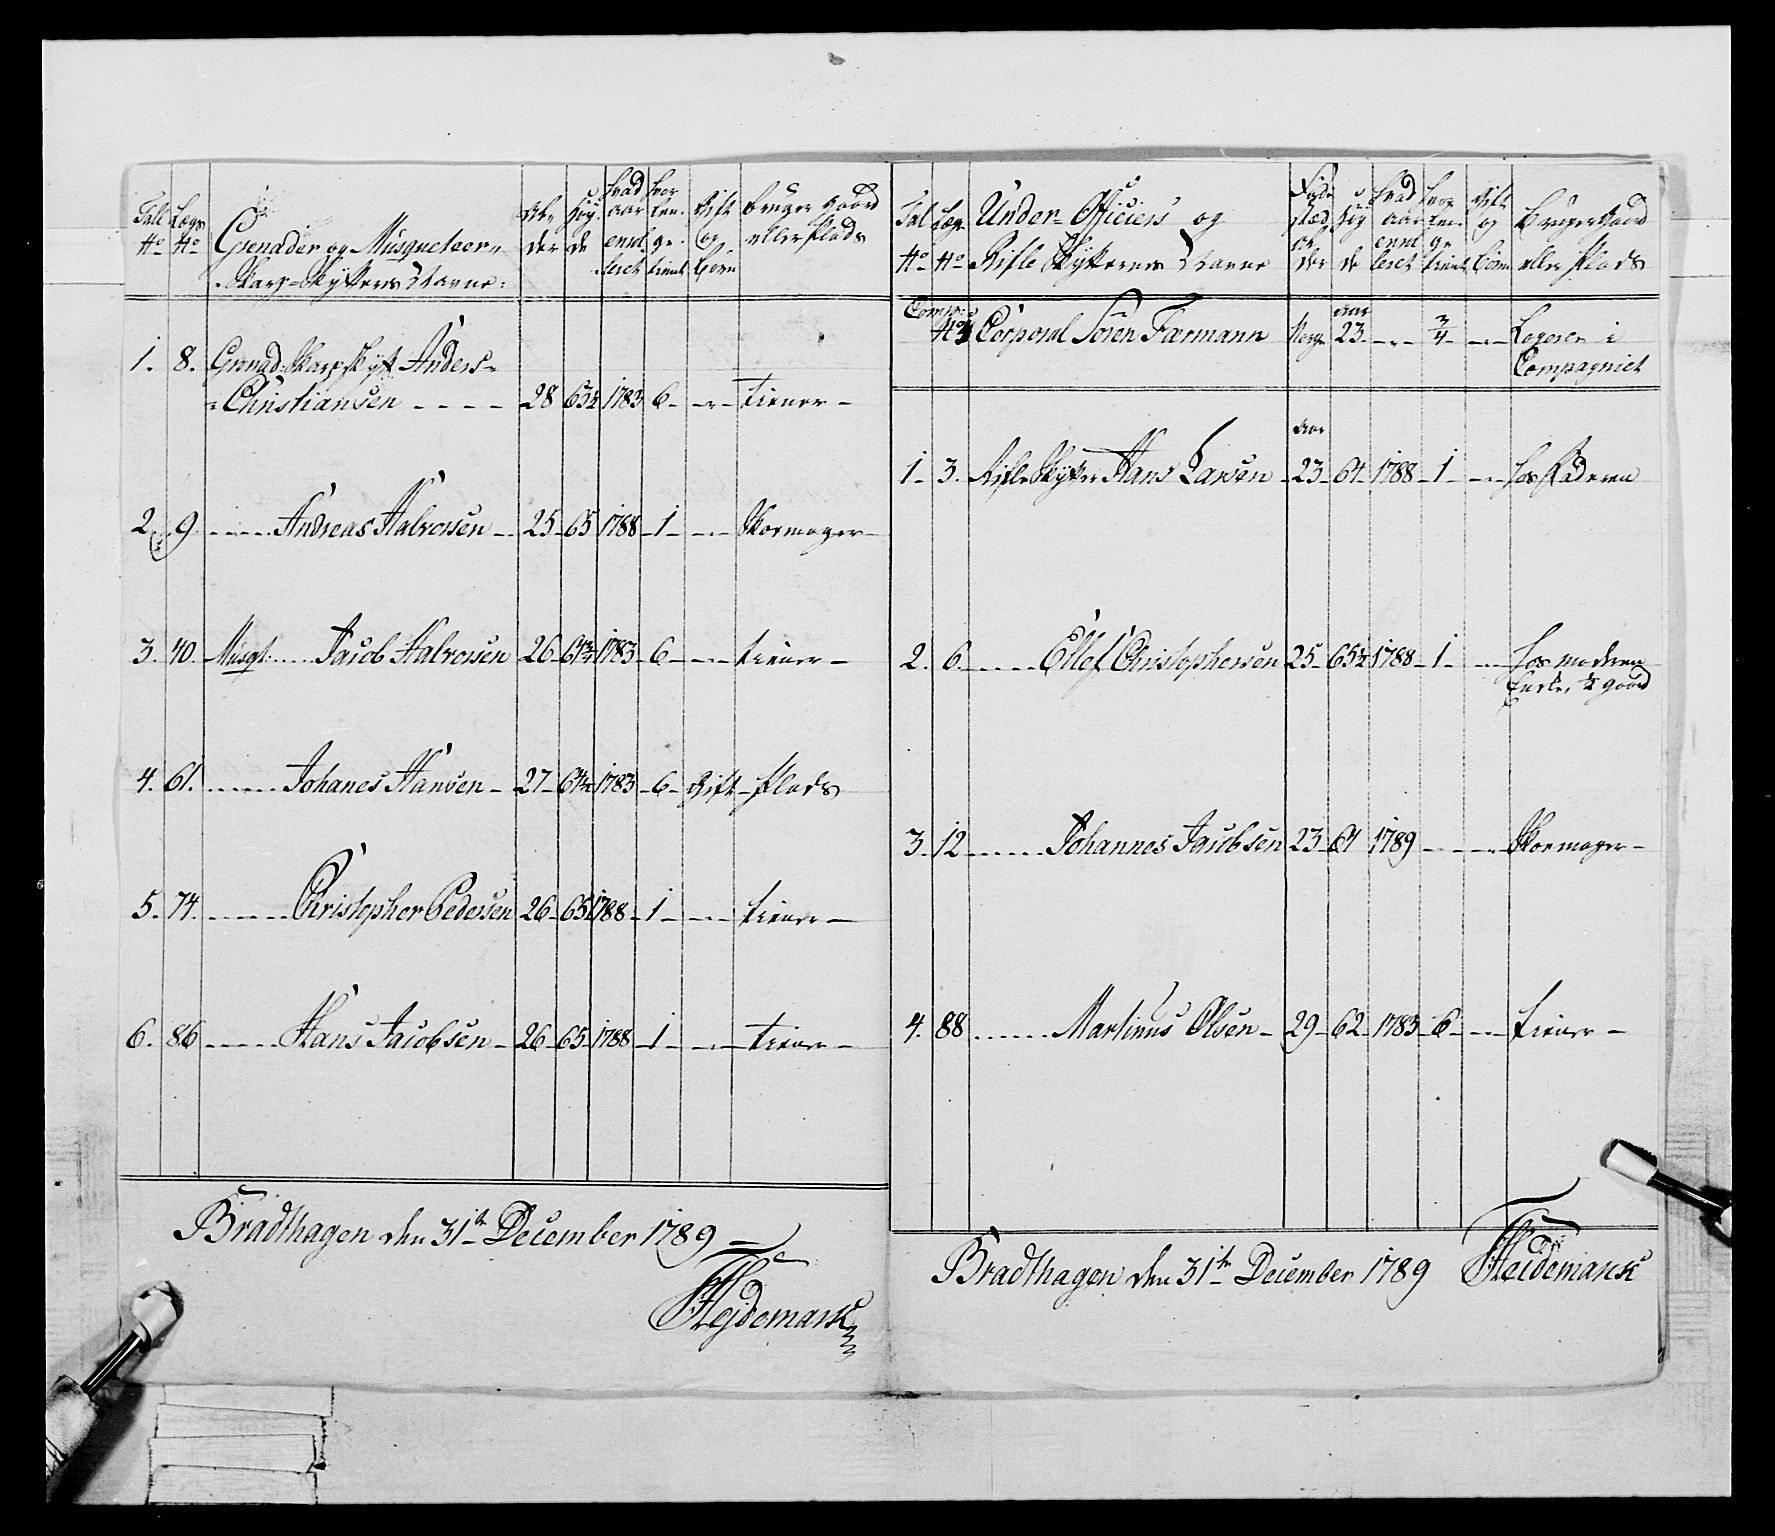 Tall No
Lægs No
Grenader og Musqueteer-
Skarp-Skytters Navne:
Al-
der
Høy-
de
Hvad
aar
enrol-
leret
Hvor
len-
ge
tient
Gift
og
børn
bruger gaard
eller Plads
1. 8. Grenad: Skarpskytt Anders-
Christiansen - - - - 28 63½ 1783 6 - - - tiener -
2. 9. Andreas Halvorsen - 25 - 65 1788 - 1 - - - Skoemager -
3. 40. Musqt: Jacob Halvorsen 26 - 64¾ 1783 - 6 - - - tiener -
4. 61. Johanes Hansen - 27 - 64½ 1783 - 6 - Gift - Plads
5. 74. Christopher Pedersen 26 - 65½ 1788 - 1 - - - tiener -
6. 86 Hans Jacobsen - 26 - 65 - 1788 - 1 - - - tiener -
Bradthagen den 31te December 1789 -
Hejdemark
Tal
No
Læg
No
Under-Officiers og
Rifle Skytternes Navne
Føde
stæd
og
al
der
Høy
de
Hvad
aar
enrol
leret
Hvor
len-
ge
tient
Gift
og
børn
bruger Gaard
eller Plads
Comp:
No 4 Corporal Sören Farmann Norge aar 23 - - - ¾ - - - Logerer i
Compagniet
aar
1 - 3. Rifle Skytter Hans Larsen - 23 - 64 - 1788 - 1 - - - hos Faderen
2. 6. Ellef Christophersen 25 - 65½ 1788 - 1 - - - hos moderen
Encke, ½ gaard
3. 12 Johannes Jacobsen 23 - 64 1789 - - - - Skoemager -
4. 88 Martinus Olsen - 29 - 62 - 1783 - 6 - - - tiener -
Bradthagen den 31te December 1789 Heidemark